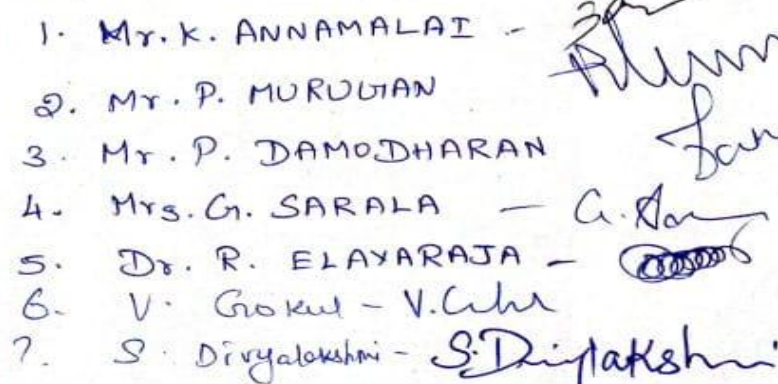 1. Mr. K. ANNAMALAI -
2. Mr. P. MURUGAN
3. Mr. P. DAMODHARAN
4. Mrs. G. SARALA -
5. Dr. R. ELAYARAJA -
6. V. Gokul -
7. S. Divyalakshmi -